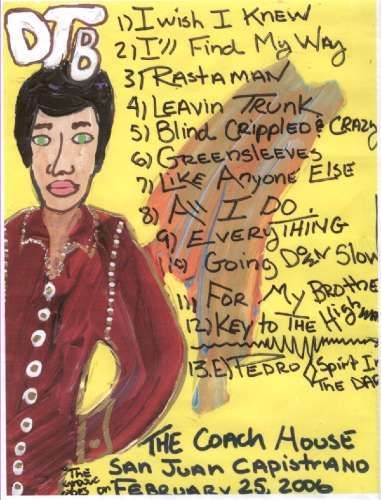 DTB
1) I wish I Knew
2) I'll Find My Way
3) RASTAMAN
4) LEAVIN TRUNK
5) Blind CRIPPLED & CRAZY
6) GREENSLEEVES
7) LIKE ANYONE ELSE
8) All I DO.
9) EVERYTHING
10) Going DOWN Slow
11) FOR MY BROTHE
12) KEY TO THE HIGHWAY
13.E) PEDRO (SPIRT IN THE DAR
THE COACH HOUSE
SAN JUAN CAPISTRANO
"THE
ON FEBRUARY 25, 2006